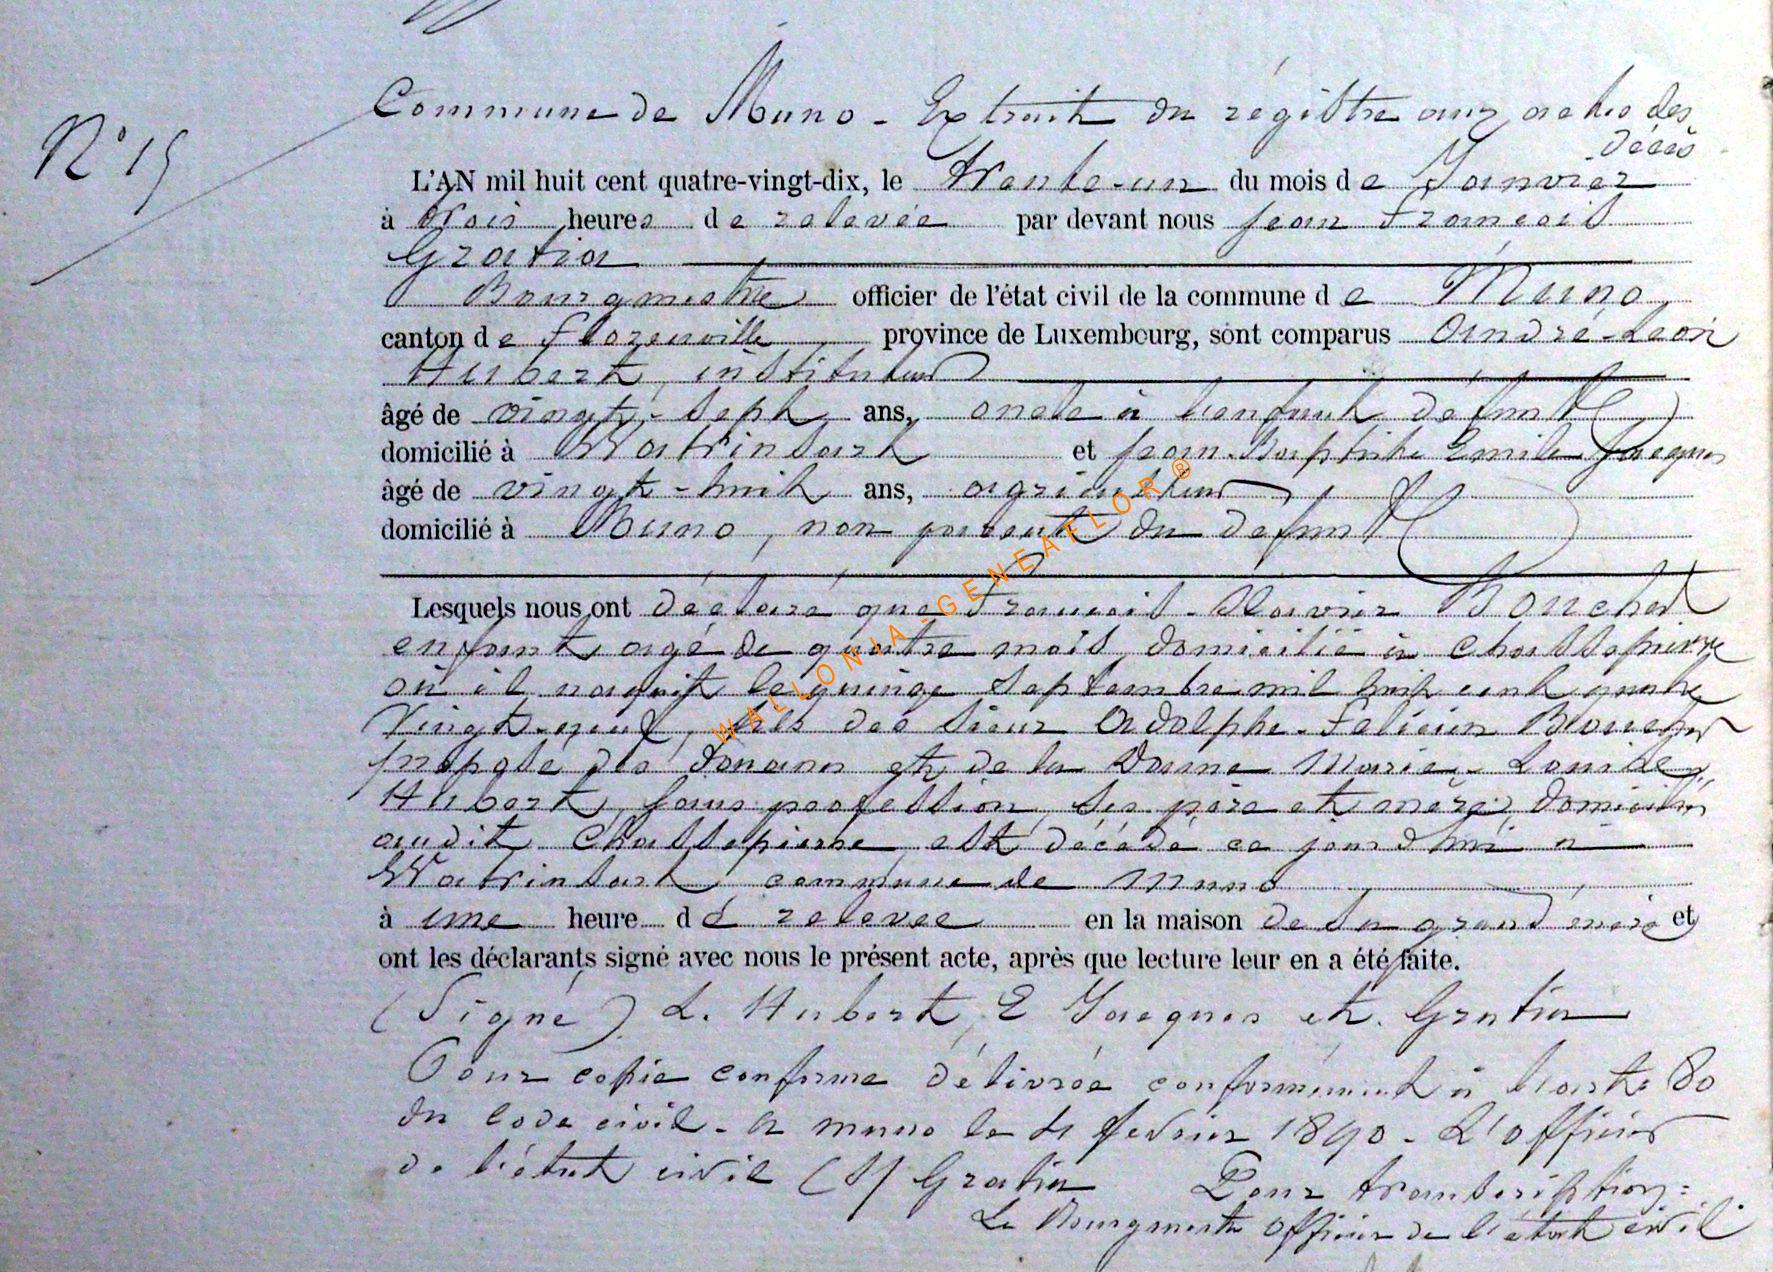 Commune de Muno - Extrait du régistre aux actes des
décès
N° 15
L'AN mil huit cent quatre-vingt-dix, le trente-un du mois de Janvier
à trois heures de relevée par devant nous Jean François
Gratia
Bourgmestre officier de l'état civil de la commune de Muno
canton de Florenville province de Luxembourg, sont comparus André-Léon
Hubert, instituteur
âgé de vingt-sept ans, oncle à l'enfant défunt
domicilié à Watrinsart et Jean-Baptiste Emile Jacques
âgé de vingt-huit ans, agriculteur
domicilié à Muno, non parent du défunt
Lesquels nous ont déclaré que François-Xavier Boucher
enfant agé de quatre mois, domicilié à Chassepierre
où il naquit le quinze Septembre mil huit cent quatre
Vingt-neuf, fils des sieur Adolphe-Felicien Boucher
préposé des douanes et de la Dame Marie-Louise
Hubert, sans profession, ses père et mère, domiciliés
audit Chassepierre, est décédé ce jourd'hui à
Watrinsart commune de Muno
à une heure de relevée en la maison de sa grand'mère et
ont les déclarants signé avec nous le présent acte, après que lecture leur en a été faite.
(Signé) L. Hubert, E Jacques et. Gratia
Pour copie conforme délivrée conformément à l'art: 80
du code civil - à muno le 4 fevrier 1890 - L'officier
de l'état civil (S/ Gratia Pour transcription:
Le Bourgmestre officier de l'état civil
WALLONIA-GENEAFLOR®